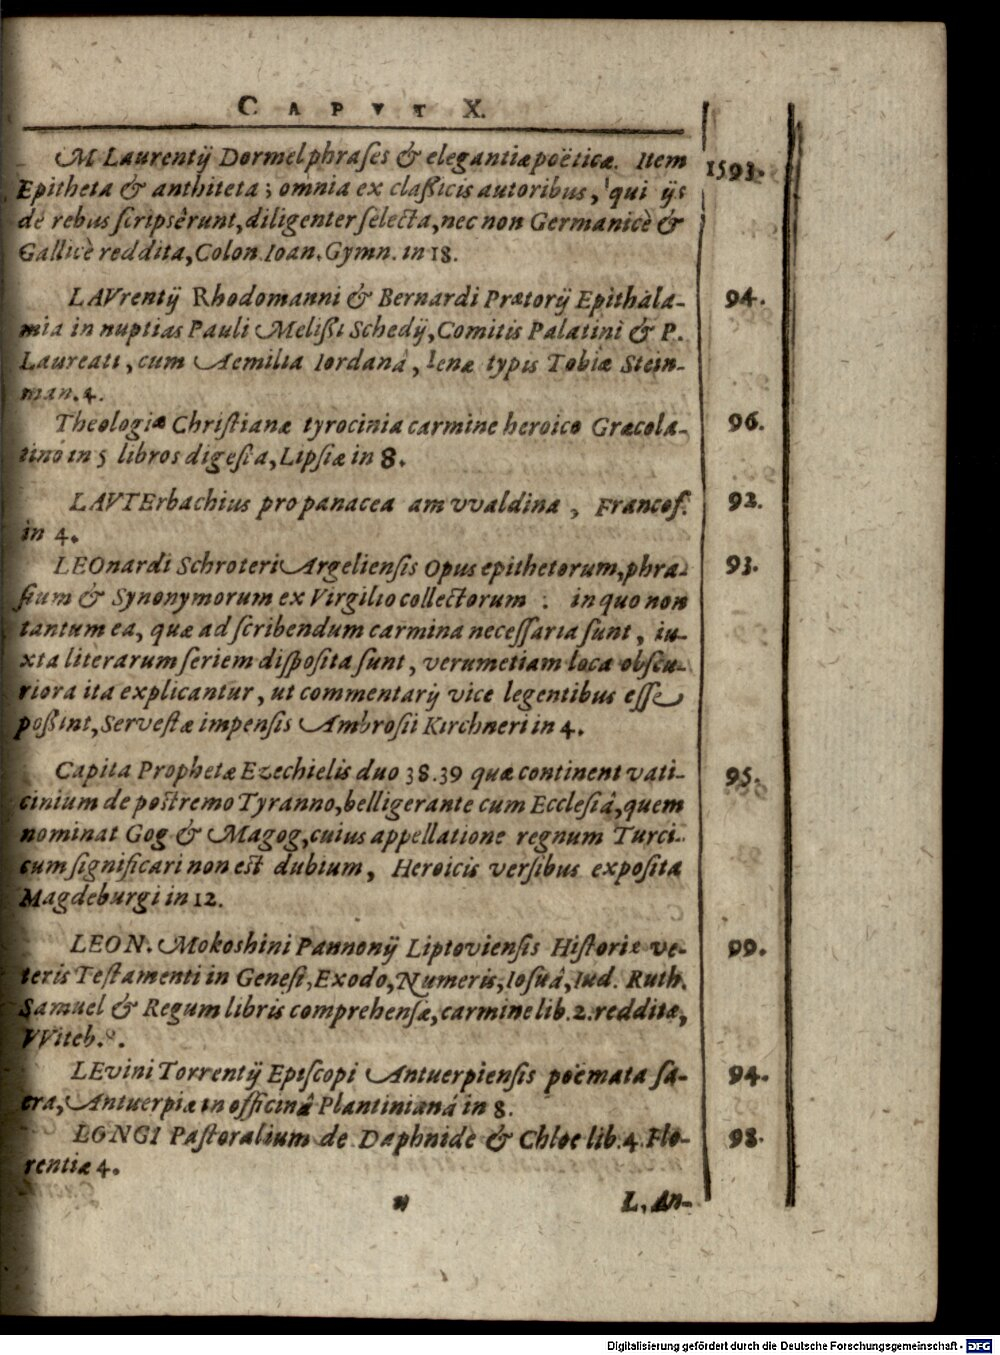 CAPVT X.
M Laurentij Dormel phrases & elegantiæ poëticæ. Item 1593.
Epitheta & anthiteta; omnia ex claßicis autoribus, qui ijs
de rebus scripsêrunt, diligenter selecta, nec non Germanicè &
Gallicè reddita, Colon. Ioan. Gymn. in 18.
LAVrentij Rhodomanni & Bernardi Prætorij Epithala- 94.
mia in nuptias Pauli Melißi Schedij, Comitis Palatini & P.
Laureati, cum Aemilia Iordanâ, Ienæ typis Tobiæ Stein-
man. 4.
Theologiæ Christianæ tyrocinia carmine heroico Græcola- 96.
tino in 5 libros digesta, Lipsiæ in 8.
LAVTErbachius pro panacea am vvaldina, Francof. 92.
in 4.
LEOnardi Schroteri Argeliensis Opus epithetorum, phra- 93.
sium & Synonymorum ex Virgilio collectorum : in quo non
tantum ea, quæ ad scribendum carmina necessaria sunt, iu-
xta literarum seriem disposita sunt, verumetiam loca obscu-
riora ita explicantur, ut commentarij vice legentibus esse
poßint, Servestæ impensis Ambrosii Kirchneri in 4.
Capita Prophetæ Ezechielis duo 38.39 quæ continent vati- 95.
cinium de postremo Tyranno, belligerante cum Ecclesiâ, quem
nominat Gog & Magog, cuius appellatione regnum Turci-
cum significari non est dubium, Heroicis versibus exposita
Magdeburgi in 12.
LEON. Mokoshini Pannonij Liptoviensis Historiæ ve- 99.
teris Testamenti in Genesi, Exodo, Numeris, Iosuâ, Iud. Ruth,
Samuel & Regum libris comprehensæ, carmine lib. 2. redditæ,
VViteb. 8.
LEvini Torrentij Episcopi Antuerpiensis poëmata sa- 94.
cra, Antuerpiæ in officinâ Plantinianâ in 8.
LONGI Pastoralium de Daphnide & Chloe lib. 4. Flo- 98.
rentiæ 4.
n L. An-
Digitalisierung gefördert durch die Deutsche Forschungsgemeinschaft - DFG